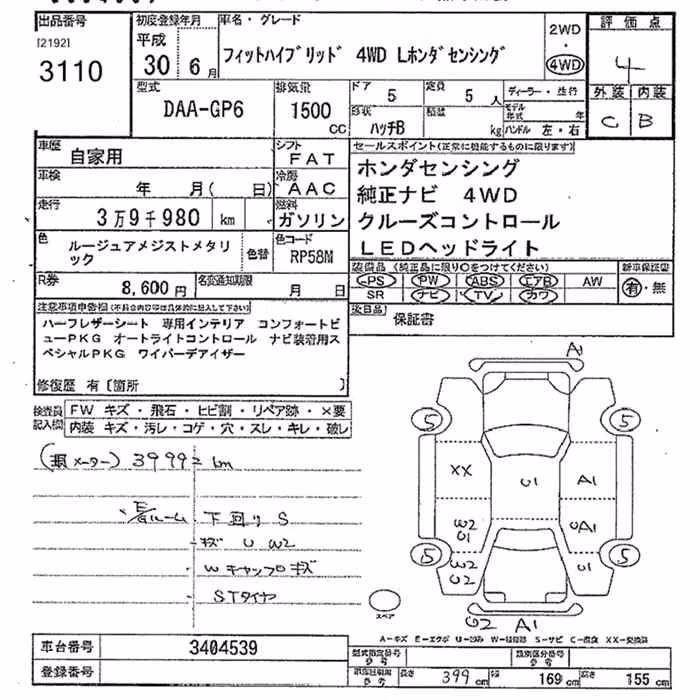 出品番号
[2192]
3110
初度登録年月
平成
30 6月
車名・グレード
フィットハイブリッド 4WD Lホンダセンシング
2WD
・
4WD
評価点
4
外装 内装
C B
型式
DAA-GP6
排気量
1500
CC
ドア
5
定員
5 人
形状
ハッチB
積載
kg
ディーラー・並行
モデル年式 年
ハンドル 左・右
車歴
自家用
シフト
FAT
車検
年 月( 日)
冷房
AAC
走行
3万9千980 km
燃料
ガソリン
色
ルージュアメジストメタリ
ック
色替
色コード
RP58M
R券
8,600円
名変通知期限
月 日
セールスポイント(正常に機能するものに限ります)
ホンダセンシング
純正ナビ 4WD
クルーズコントロール
LEDヘッドライト
装備品 (純正品に限り○をつけてください)
PS PW ABS エアB AW
SR ナビ TV カワ
新車保証書
有・無
後日品
保証書
注意事項申告欄(不具合内容等は具体的に記入して下さい)
ハーフレザーシート 専用インテリア コンフォートビ
ューPKG オートライトコントロール ナビ装着用ス
ペシャルPKG ワイパーデアイザー
修復歴 有〔箇所 〕
検査員
記入欄
FW キズ・飛石・ヒビ割・リペア跡・×要
内装 キズ・汚レ・コゲ・穴・スレ・キレ・破レ
メーター) 39992 km
ルーム 下回り S
キズ U W2
Wキャップロキズ
STタイヤ
A1
5 5
XX U1 A1
W2
U1
UA1
5 5
W2
U2
U1
スペア
U2 A1
A-キズ E-エクボ U-凹み W-補修跡 S-サビ C-腐食 XX-交換済
車台番号
3404539
登録番号
型式指定番号
参考
類別区分番号
参考
長さ 399 cm
幅 169 cm
高さ 155 cm